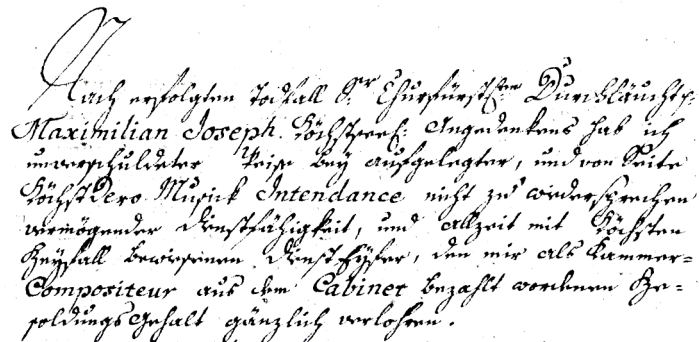 Nach erfolgten Todtfall Sr Churfürstln Durchläucht
Maximilian Joseph. Höchstseel: Angedenkens hab ich
unverschuldeter Weise bey aufgelegter, und von Seite
Höchst Dero Musick Intendance nicht zu wiedersprechen
vermögender Dienstfähigkeit, und allzeit mit höchsten
Beyfall bewiesenen Dienst Eyfer, den mir als Kammer=
Compositeur aus dem Cabinet bezahlt wordenen Be=
soldungs Gehalt gänzlich verlohren.